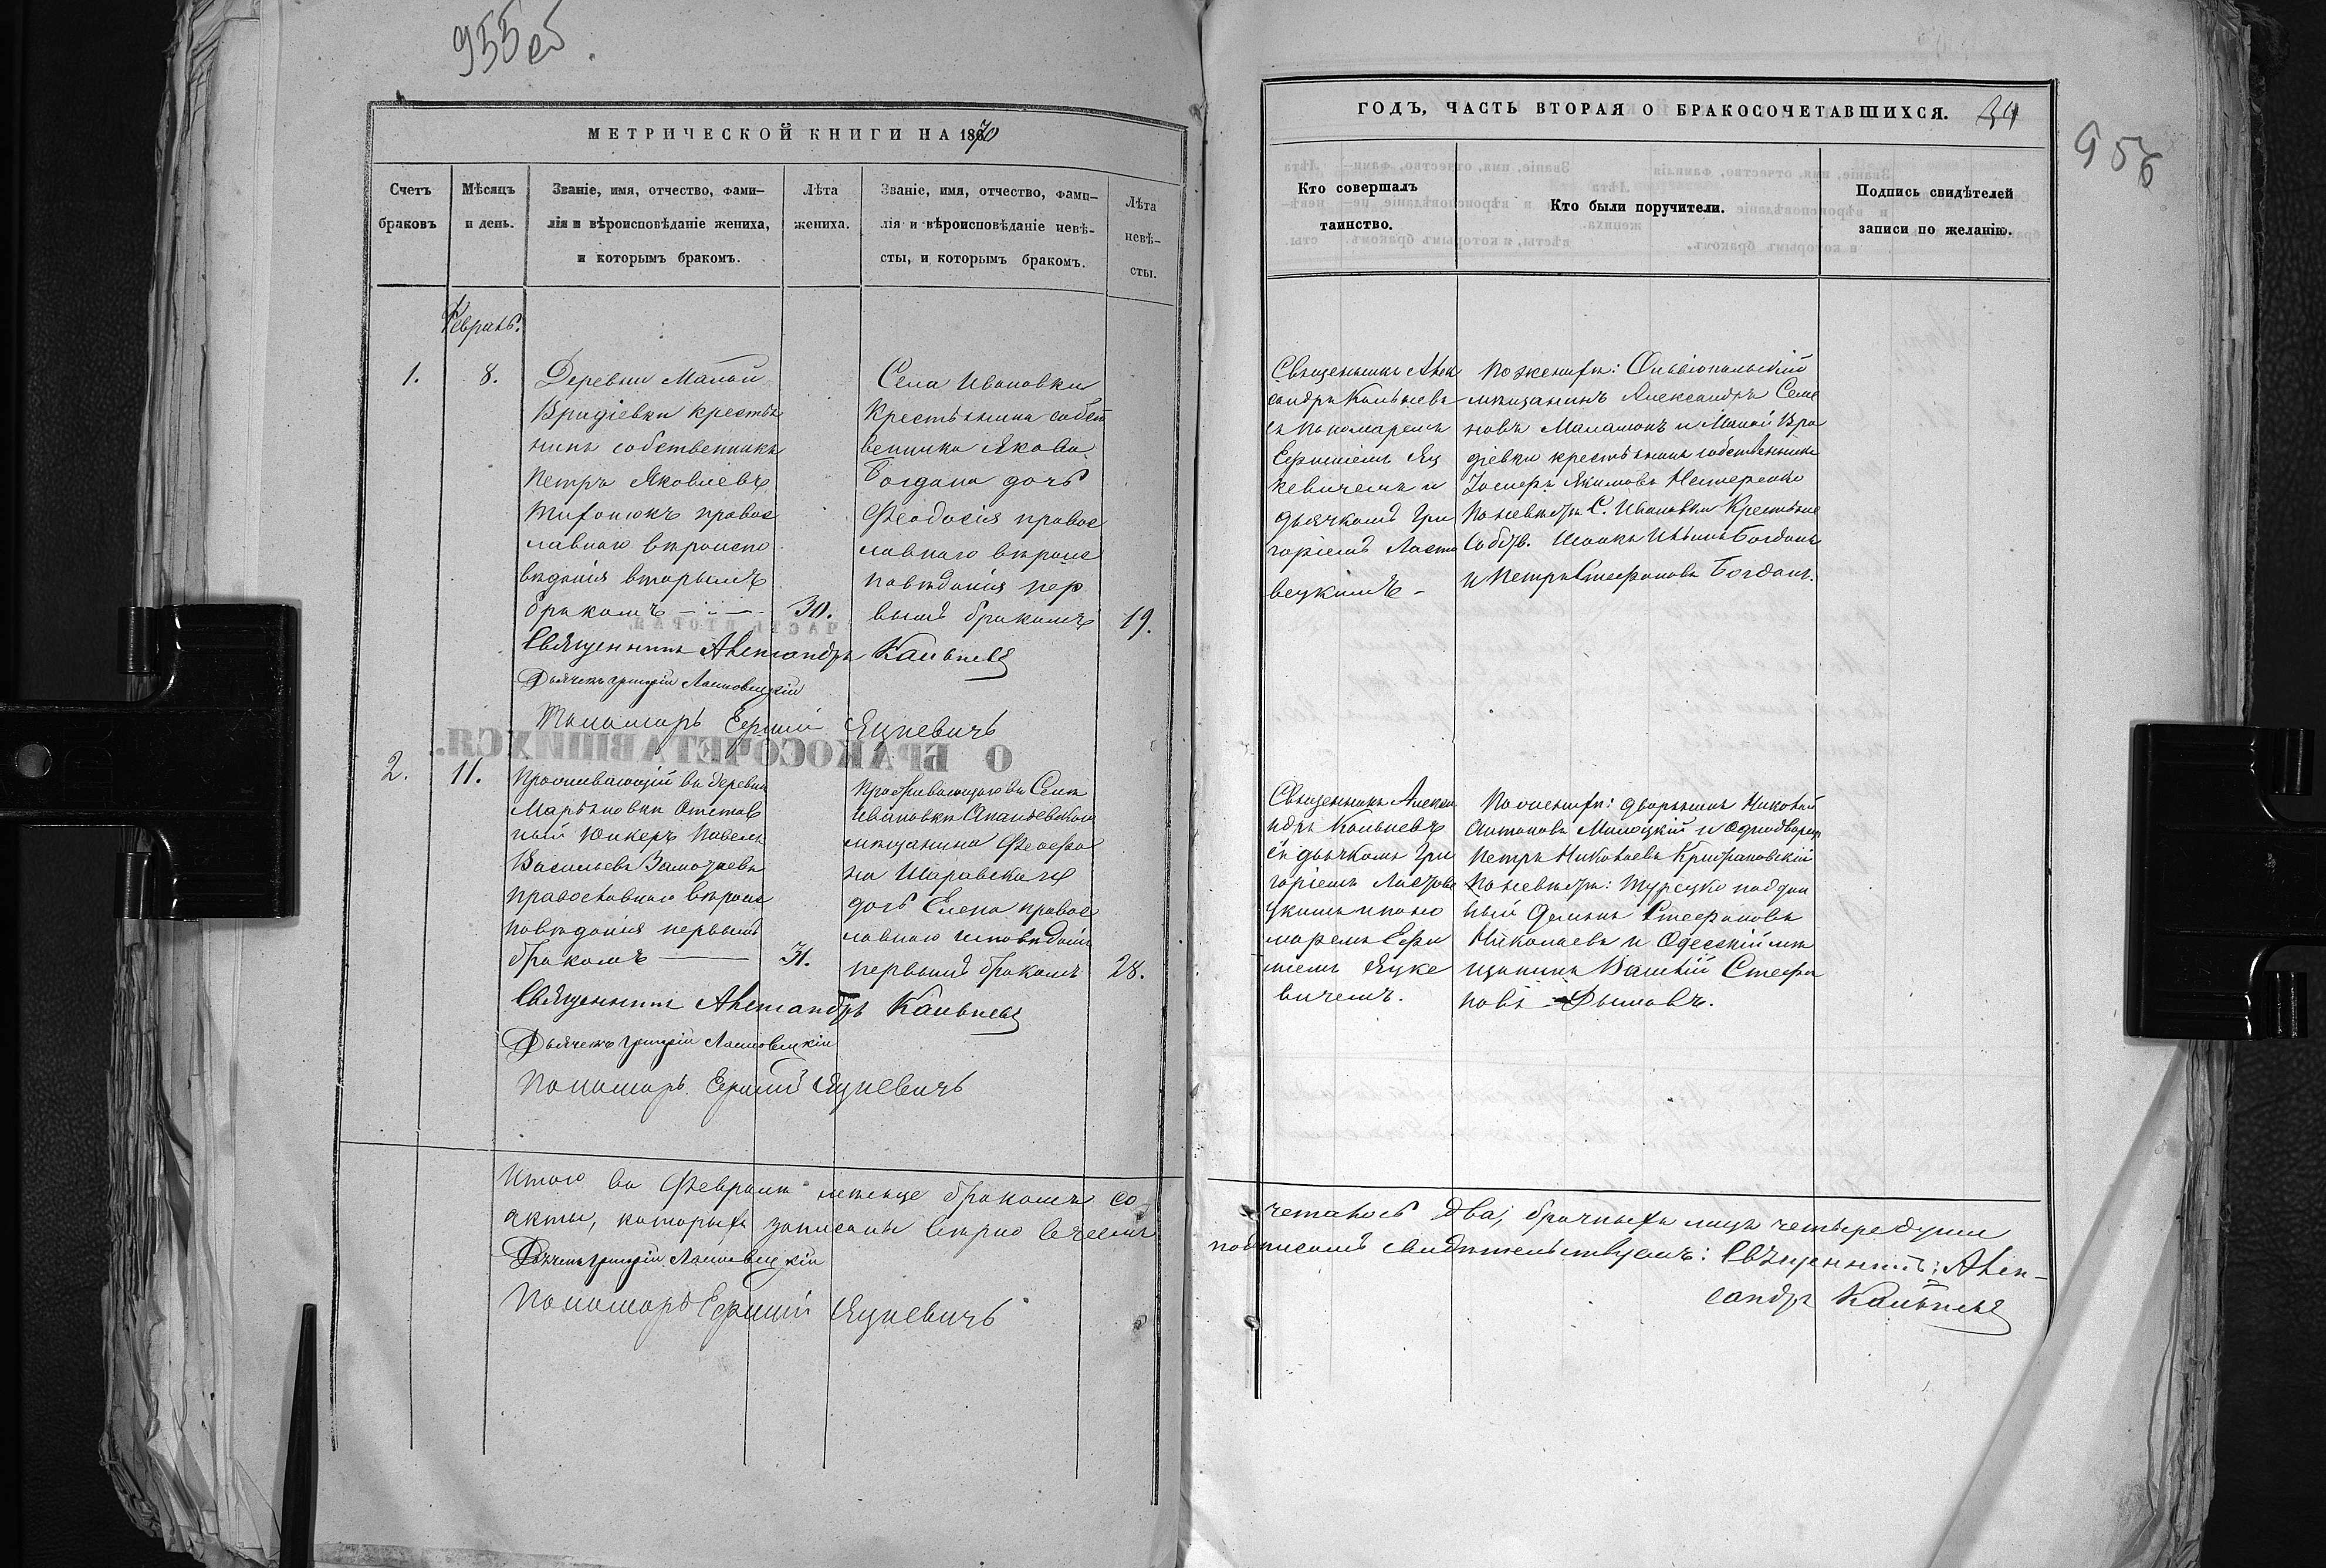 955об.
МЕТРИЧЕСКОЙ КНИГИ НА 1870
Счетъ
браковъ
Мѣсяцъ
и день.
Званіе, имя, отчество, фами-
лія и вѣроисповѣданіе жениха,
и которымъ бракомъ.
Лѣта
жениха.
Званіе, имя, отчество, фами-
лія и вѣроисповѣданіе невѣ-
сты, и которымъ бракомъ.
Лѣта
невѣ-
сты.
Февраль.
1.
8.
Деревни Малой
Врадіевки крестья
нинъ собственникъ
Петръ Яковлевъ
православ
наго вѣроиспо
вѣданія вторымъ
бракомъ
30.
Села Ивановки
Крестьянина собст
венника Якова
Богдана дочь
Феодосія правос
лавнаго вѣроис
повѣданія пер
вымъ бракомъ
19.
Священникъ Александръ
Дьячекъ Григорій Ластовецкій
Пономарь Ефимій Яцкевичъ
2.
11.
Проживающій въ деревни
Марьяновки Отстав
ный Юнкеръ Павелъ
Васильевъ
православнаго вѣроис
повѣданія первымъ
бракомъ
31.
Проживающаго въ Селѣ
Ивановки Ананьевскаго
мѣщанина Феофа
на Шаравскаго
дочь Елена правос
лавнаго исповѣданія
первымъ бракомъ
28.
Священникъ Александръ
Дьячекъ Григорій Ластовецкій
Пономарь Ефимій Яцкевичъ
Итого въ Февралѣ мѣсяцѣ бракомъ со
акты, которыхъ записаны вѣрно въ чемъ
Дьячекъ Григорій Ластовецкій
Пономарь Ефимій Яцкевичъ
ГОДЪ, ЧАСТЬ ВТОРАЯ О БРАКОСОЧЕТАВШИХСЯ.
34
956
Кто совершалъ
таинство.
Кто были поручители.
Подпись свидѣтелей
записи по желанію.
Священникъ Алек
сандръ
съ пономаремъ
Ефиміемъ Яц
кевичемъ и
дьячкомъ Гри
горіемъ Ласто
вецкимъ
По женихѣ: Ольвіопольскій
мѣщанинъ Александръ Семе
новъ и Малой Вра
діевки крестьянинъ собственникъ
Іосифъ Якимовъ Нестеренко
По невѣстѣ С. Ивановки Крестьяне
Собств. Ильинъ Богданъ
и Петръ Стефановъ Богданъ.
Священникъ Алексан
дръ
съ дьячкомъ Гри
горіемъ Ластове
цкимъ и поно
маремъ Ефи
міемъ Яцке
вичемъ.
По женихѣ: дворянинъ Николай
Антоновъ и Однодворецъ
Петръ Николаевъ
По невѣстѣ: Турецко поддан
ный Демьянъ Стефановъ
Николаевъ и Одесскій мѣ
щанинъ Василій Стефа
новъ Дымовъ.
четалось два, брачныхъ лицъ четыре души
подписомъ свидѣтельствуемъ: Священникъ: Алек-
сандръ